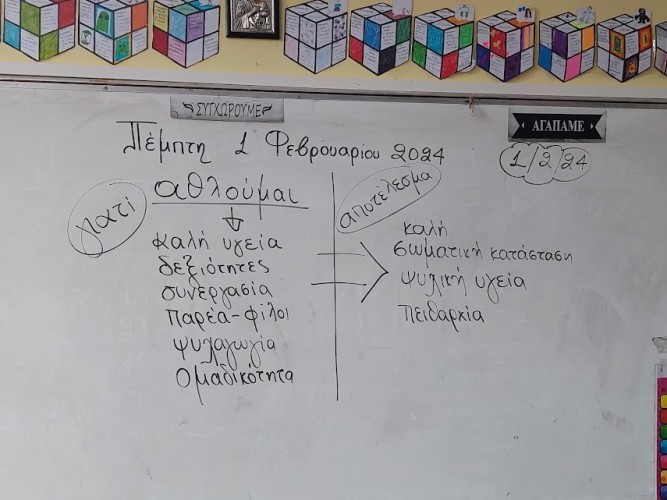 ΣΥΓΧΩΡΟΥΜΕ
ΑΓΑΠΑΜΕ
Πέμπτη 1 Φεβρουαρίου 2024
1/2/24
γιατί
αθλούμαι
αποτέλεσμα
καλή υγεία
δεξιότητες
συνεργασία
παρέα-φίλοι
ψυχαγωγία
Ομαδικότητα
καλή
σωματική κατάσταση
ψυχική υγεία
πειθαρχία